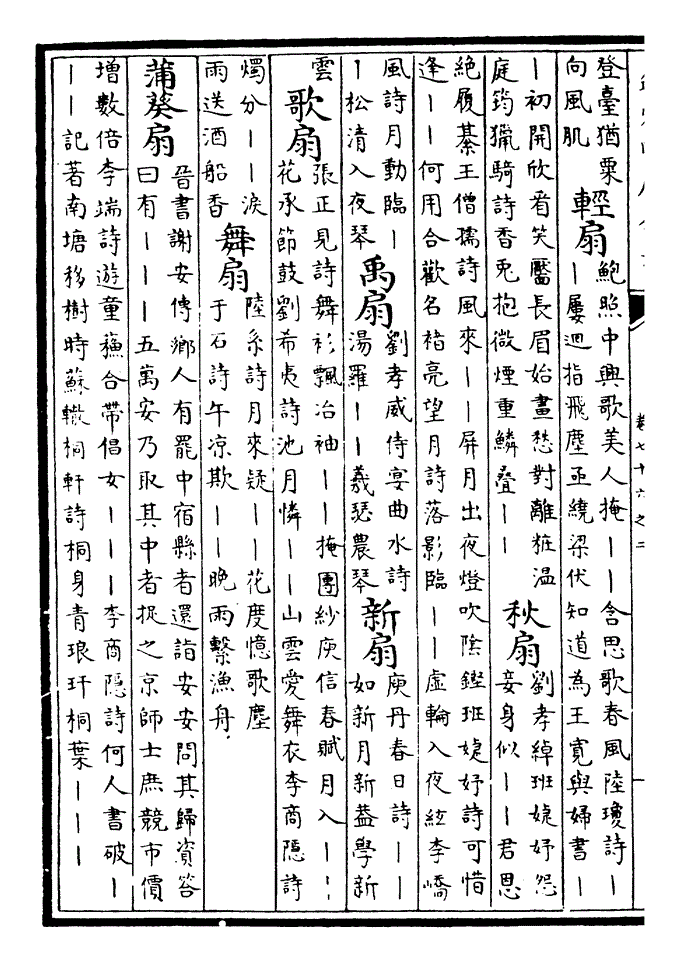 卷七十六之二
登臺猶粟
向風肌
輕扇
鮑照中興歌美人掩——含思歌春風陸瓊詩—
—屢迴指飛塵亟繞梁伏知道為王寬與婦書—
—初開欣看笑靨長眉始畫愁對離粧温
庭筠獵騎詩香兎抱微煙重鱗疊——
秋扇
劉孝綽班婕妤怨
妾身似——君恩
絶履綦王僧孺詩風來——屏月出夜燈吹陰鏗班婕妤詩可惜
逢——何用合歡名褚亮望月詩落影臨——虛輪入夜絃李嶠
風詩月動臨—
—松清入夜琴
禹扇
劉孝威侍宴曲水詩
湯羅——羲瑟農琴
新扇
庾丹春日詩——
如新月新蓋學新
雲
歌扇
張正見詩舞衫飄冶袖——掩團紗庾信春賦月入——
花承節鼓劉希夷詩池月憐——山雲愛舞衣李商隱詩
燭分——淚
雨送酒船香
舞扇
陸系詩月來疑——花度憶歌塵
于石詩午凉欺——晚雨繫漁舟
蒲葵扇
晉書謝安傳鄉人有罷中宿縣者還詣安安問其歸資答
曰有———五萬安乃取其中者捉之京師士庶競市價
增數倍李端詩遊童蘓合帶倡女———李商隱詩何人書破—
——記著南塘移樹時蘇轍桐軒詩桐身青琅玕桐葉———